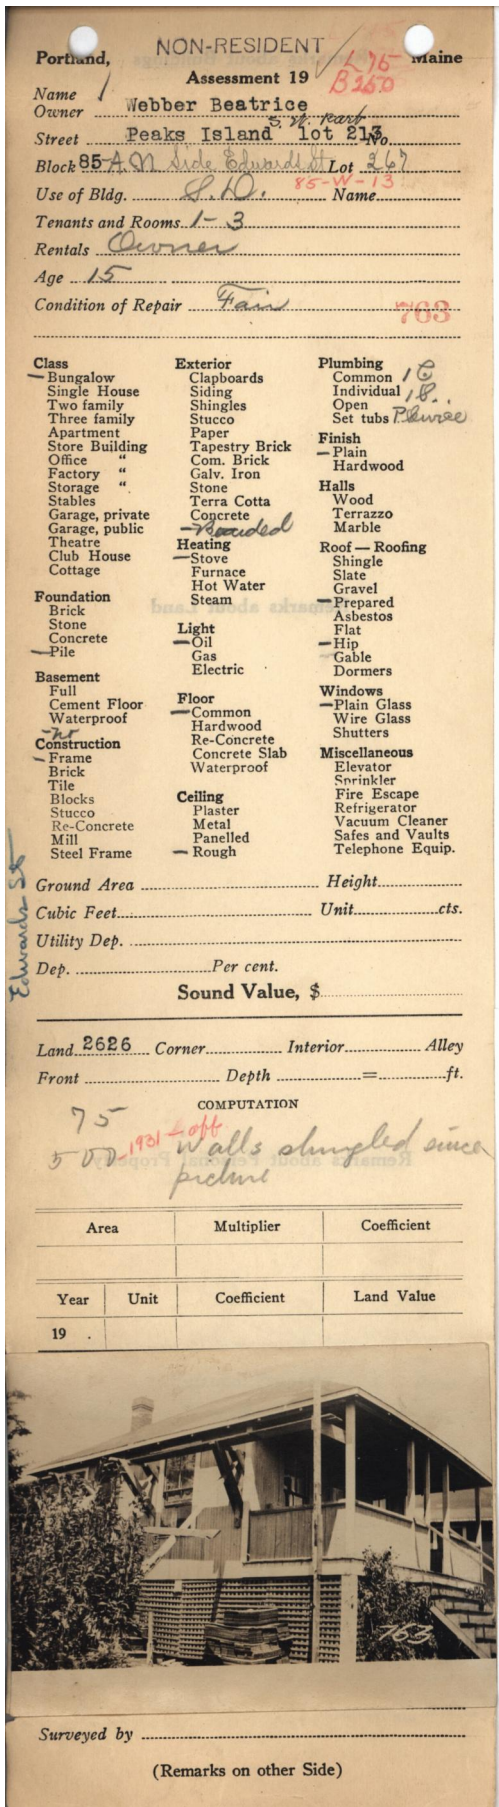 NON-RESIDENT
Portland, Maine
Assessment 19
L 75
B 250
Name
Owner Webber Beatrice
S. W. Part
Street Peaks Island lot 213 No.
Block 85-A N Side Edwards St Lot 267
85-W-13
Use of Bldg. S.D. Name
Tenants and Rooms 1-3
Rentals Owner
Age 15
Condition of Repair Fair
763
Class
Bungalow
Single House
Two family
Three family
Apartment
Store Building
Office "
Factory "
Storage "
Stables
Garage, private
Garage, public
Theatre
Club House
Cottage
Foundation
Brick
Stone
Concrete
Pile
Basement
Full
Cement Floor
Waterproof
no
Construction
Frame
Brick
Tile
Blocks
Stucco
Re-Concrete
Mill
Steel Frame
Exterior
Clapboards
Siding
Shingles
Stucco
Paper
Tapestry Brick
Com. Brick
Galv. Iron
Stone
Terra Cotta
Concrete
Boarded
Heating
Stove
Furnace
Hot Water
Steam
Light
Oil
Gas
Electric
Floor
Common
Hardwood
Re-Concrete
Concrete Slab
Waterproof
Ceiling
Plaster
Metal
Panelled
Rough
Plumbing
Common 1 C
Individual 1 B.
Open
Set tubs
Finish
Plain
Hardwood
Halls
Wood
Terrazzo
Marble
Roof — Roofing
Shingle
Slate
Gravel
Prepared
Asbestos
Flat
Hip
Gable
Dormers
Windows
Plain Glass
Wire Glass
Shutters
Miscellaneous
Elevator
Sprinkler
Fire Escape
Refrigerator
Vacuum Cleaner
Safes and Vaults
Telephone Equip.
Edwards St
Ground Area Height
Cubic Feet Unit cts.
Utility Dep.
Dep. Per cent.
Sound Value, $
Land 2626 Corner Interior Alley
Front Depth = ft.
COMPUTATION
75
500 - 1931 - off
Walls shingled since
picture
Area Multiplier Coefficient
Year Unit Coefficient Land Value
19 .
763
Surveyed by
(Remarks on other Side)